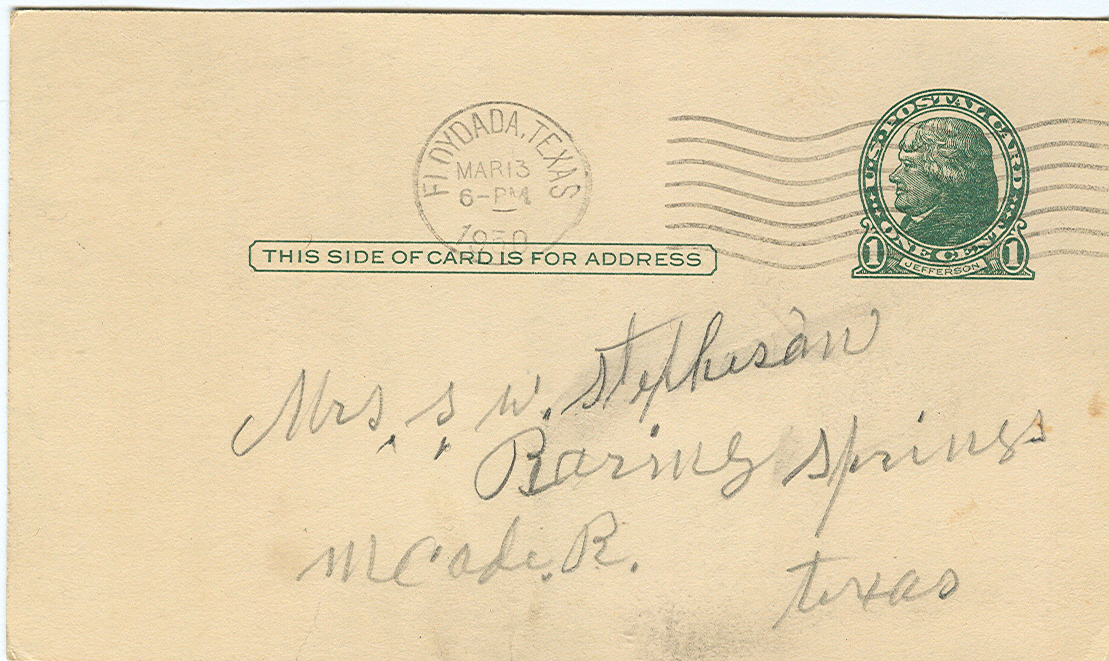 FLOYDADA, TEXAS
MAR 13
6-PM
1950
U.S. POSTAL CARD
ONE CENT
1 JEFFERSON 1
THIS SIDE OF CARD IS FOR ADDRESS
Mrs. S. W. Stephesan
Baring Springs
McAde. R.
texas